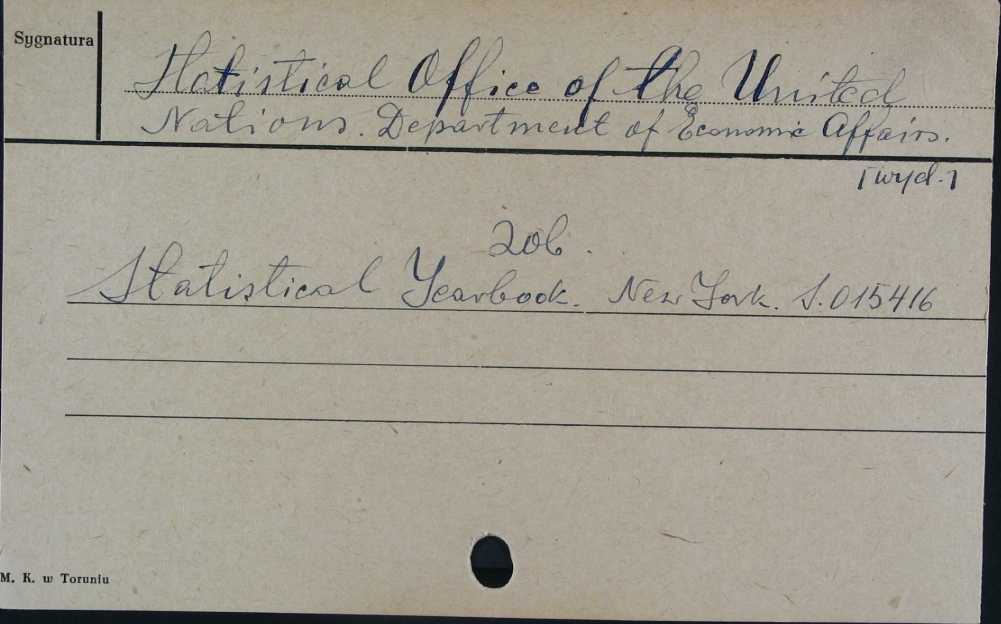 Sygnatura
Statistical Office of the United
Nations. Department of Economic Affairs.
[wyd.]
Zob.
Statistical Yearbook. New York. S.015416
M. K. w Toruniu